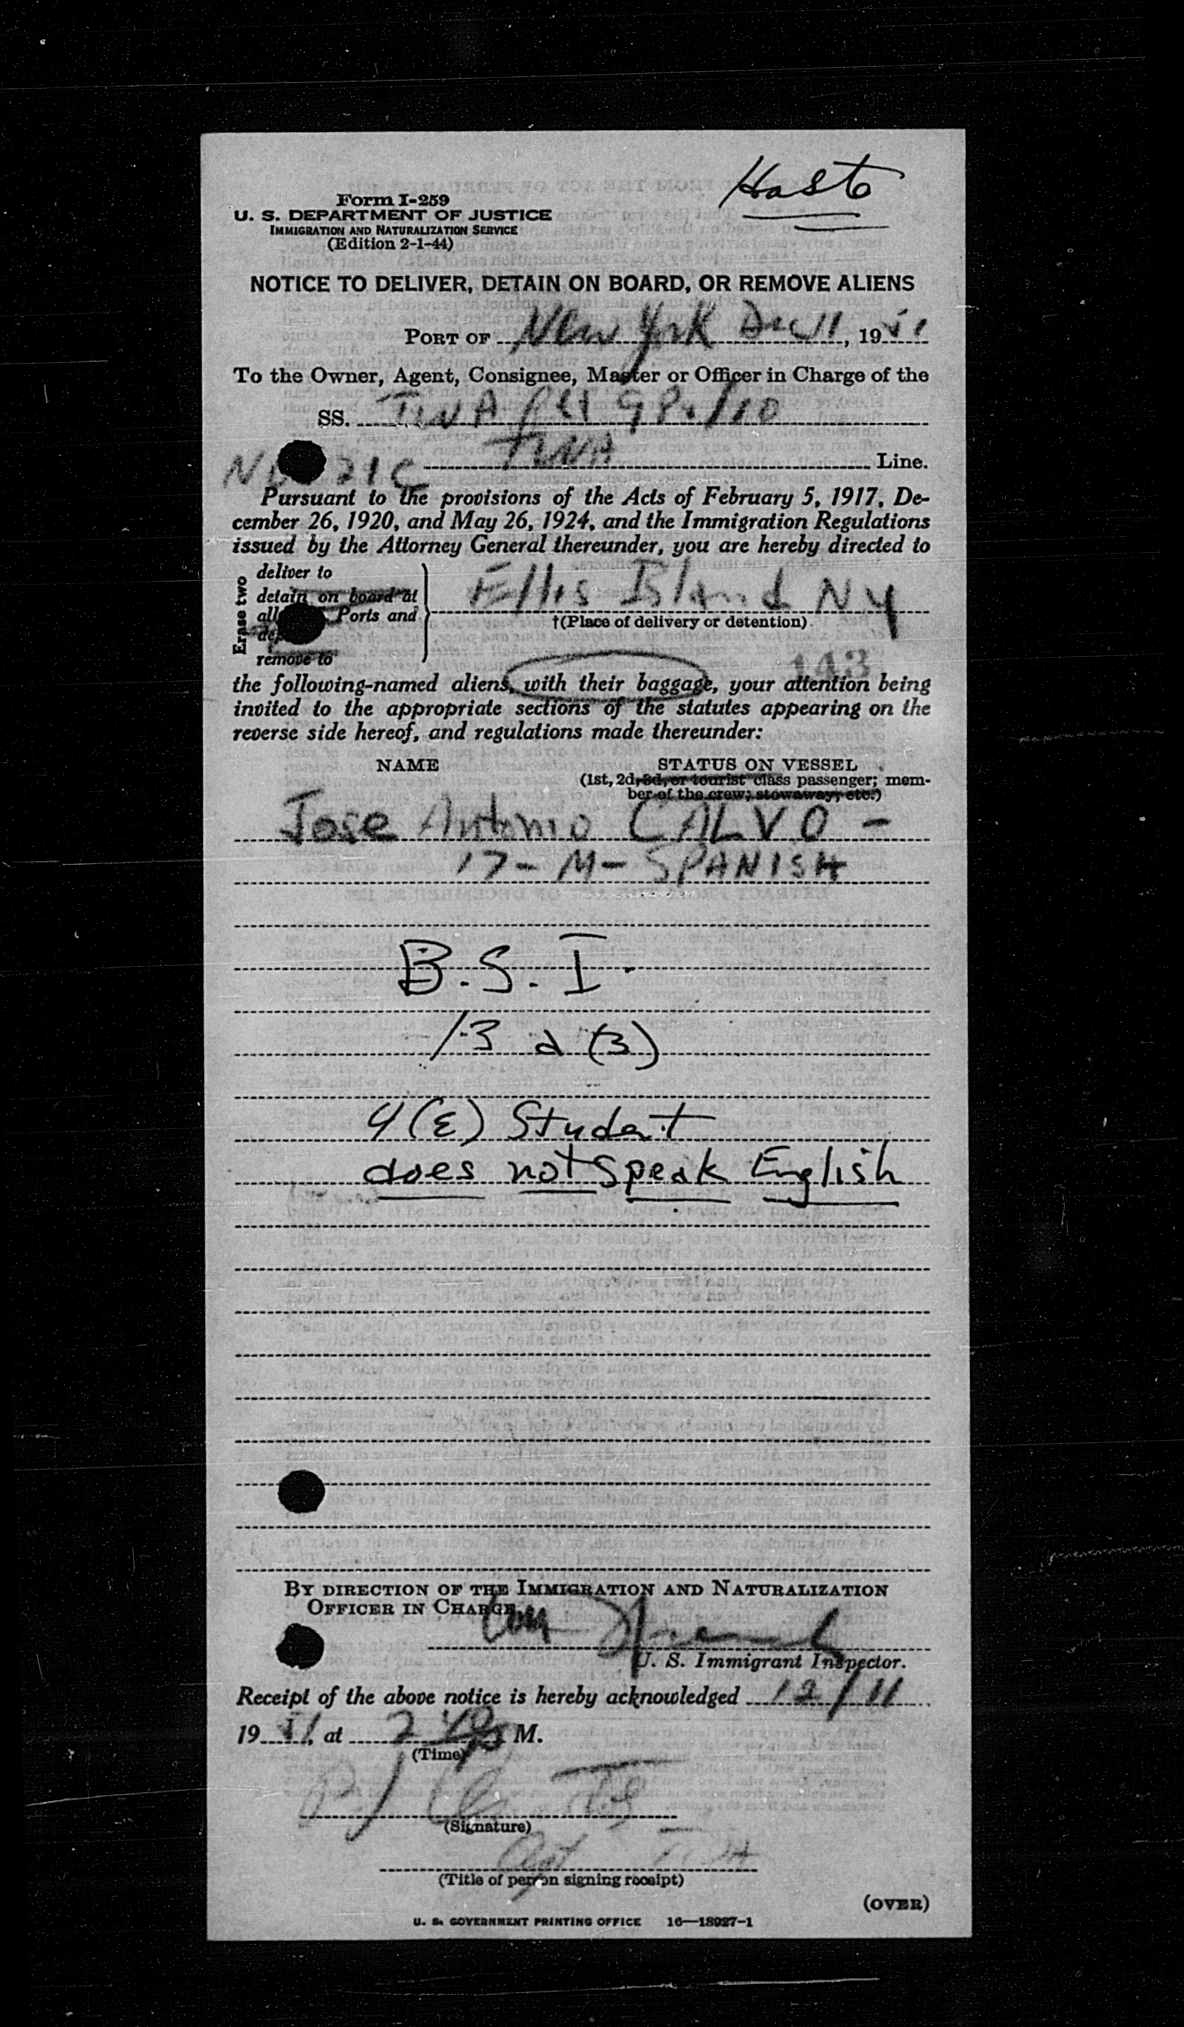 Form I-259
U. S. DEPARTMENT OF JUSTICE
IMMIGRATION AND NATURALIZATION SERVICE
(Edition 2-1-44)
NOTICE TO DELIVER, DETAIN ON BOARD, OR REMOVE ALIENS
PORT OF New York Dec 11, 1951
To the Owner, Agent, Consignee, Master or Officer in Charge of the
SS. TWA
TWA Line.
Pursuant to the provisions of the Acts of February 5, 1917, De-
cember 26, 1920, and May 26, 1924, and the Immigration Regulations
issued by the Attorney General thereunder, you are hereby directed to
Erase two
deliver to
detain on board at
Ports and
remove to
Ellis Island NY
†(Place of delivery or detention)
143
the following-named aliens, with their baggage, your attention being
invited to the appropriate sections of the statutes appearing on the
reverse side hereof, and regulations made thereunder:
NAME STATUS ON VESSEL
(1st, 2d, 3d, or tourist class passenger; mem-
ber of the crew; stowaway; etc.)
Jose Antonio CALVO -
17 - M - SPANISH
B.S.I.
13 a (3)
4(E) Student
does not speak English
BY DIRECTION OF THE IMMIGRATION AND NATURALIZATION
OFFICER IN CHARGE
U. S. Immigrant Inspector.
Receipt of the above notice is hereby acknowledged 12/11
1951, at M.
(Time)
(Signature)
Agt TWA
(Title of person signing receipt)
(OVER)
U. S. GOVERNMENT PRINTING OFFICE 16—18927-1